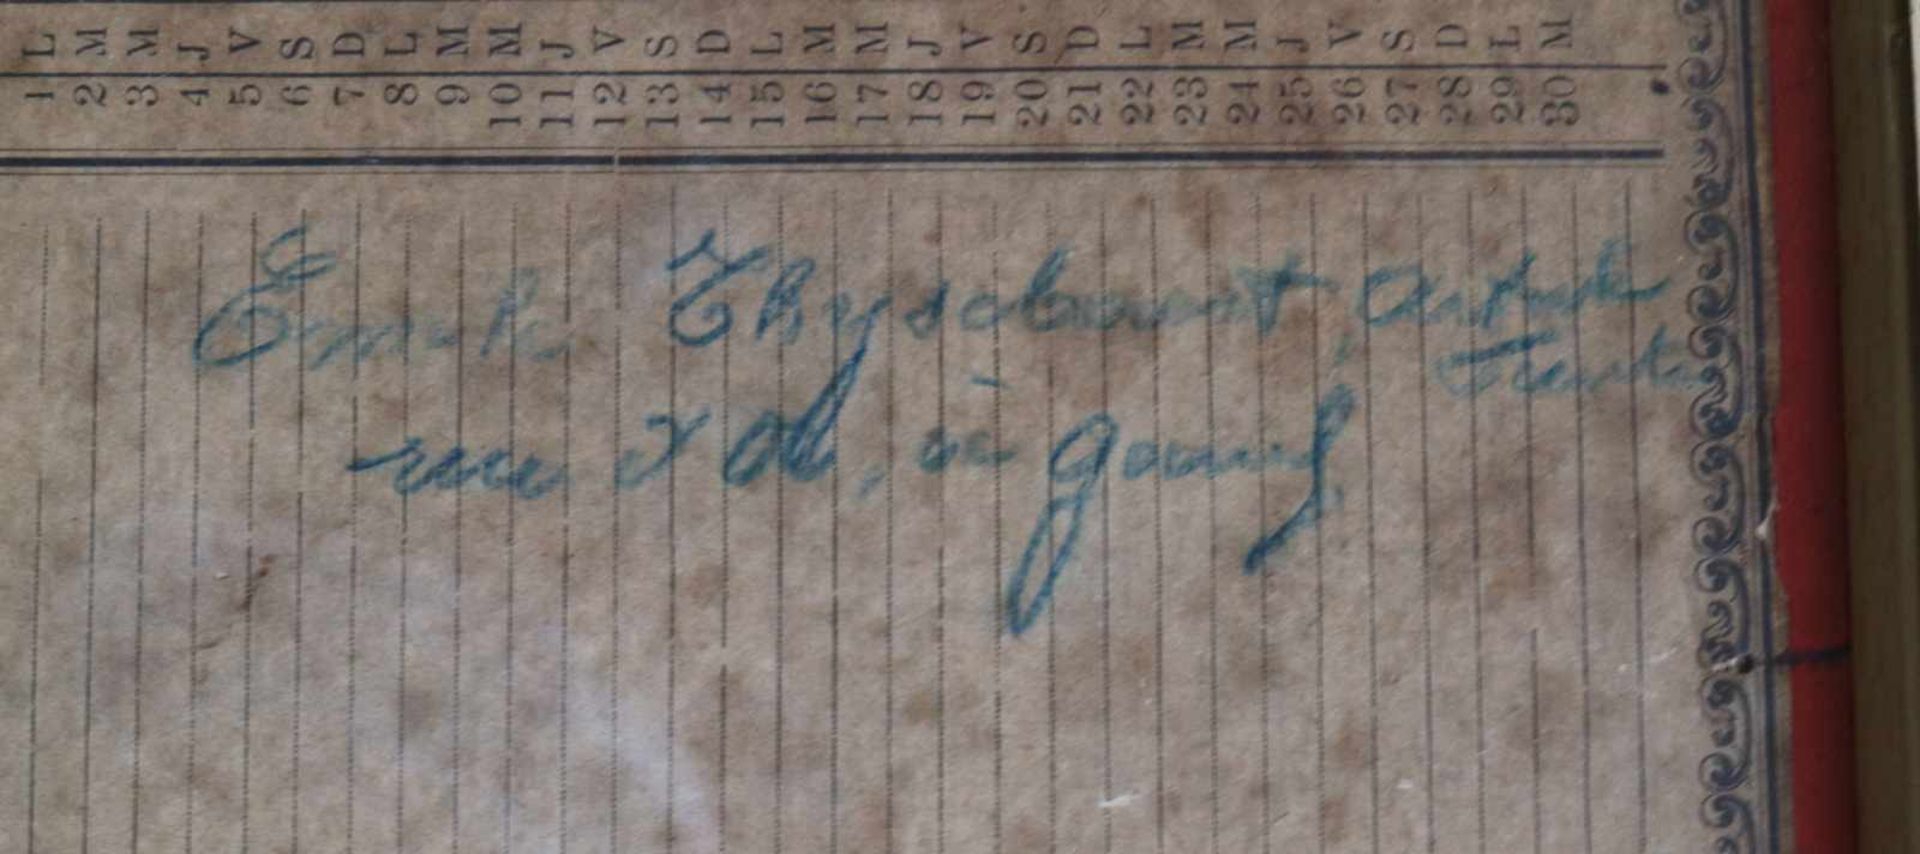 L M M J V S D L M M J V S D L M M J V S D L M M J V S D L M
1 2 3 4 5 6 7 8 9 10 11 12 13 14 15 16 17 18 19 20 21 22 23 24 25 26 27 28 29 30
Emile Thysebaert, Artiste
Peintre
rue
à